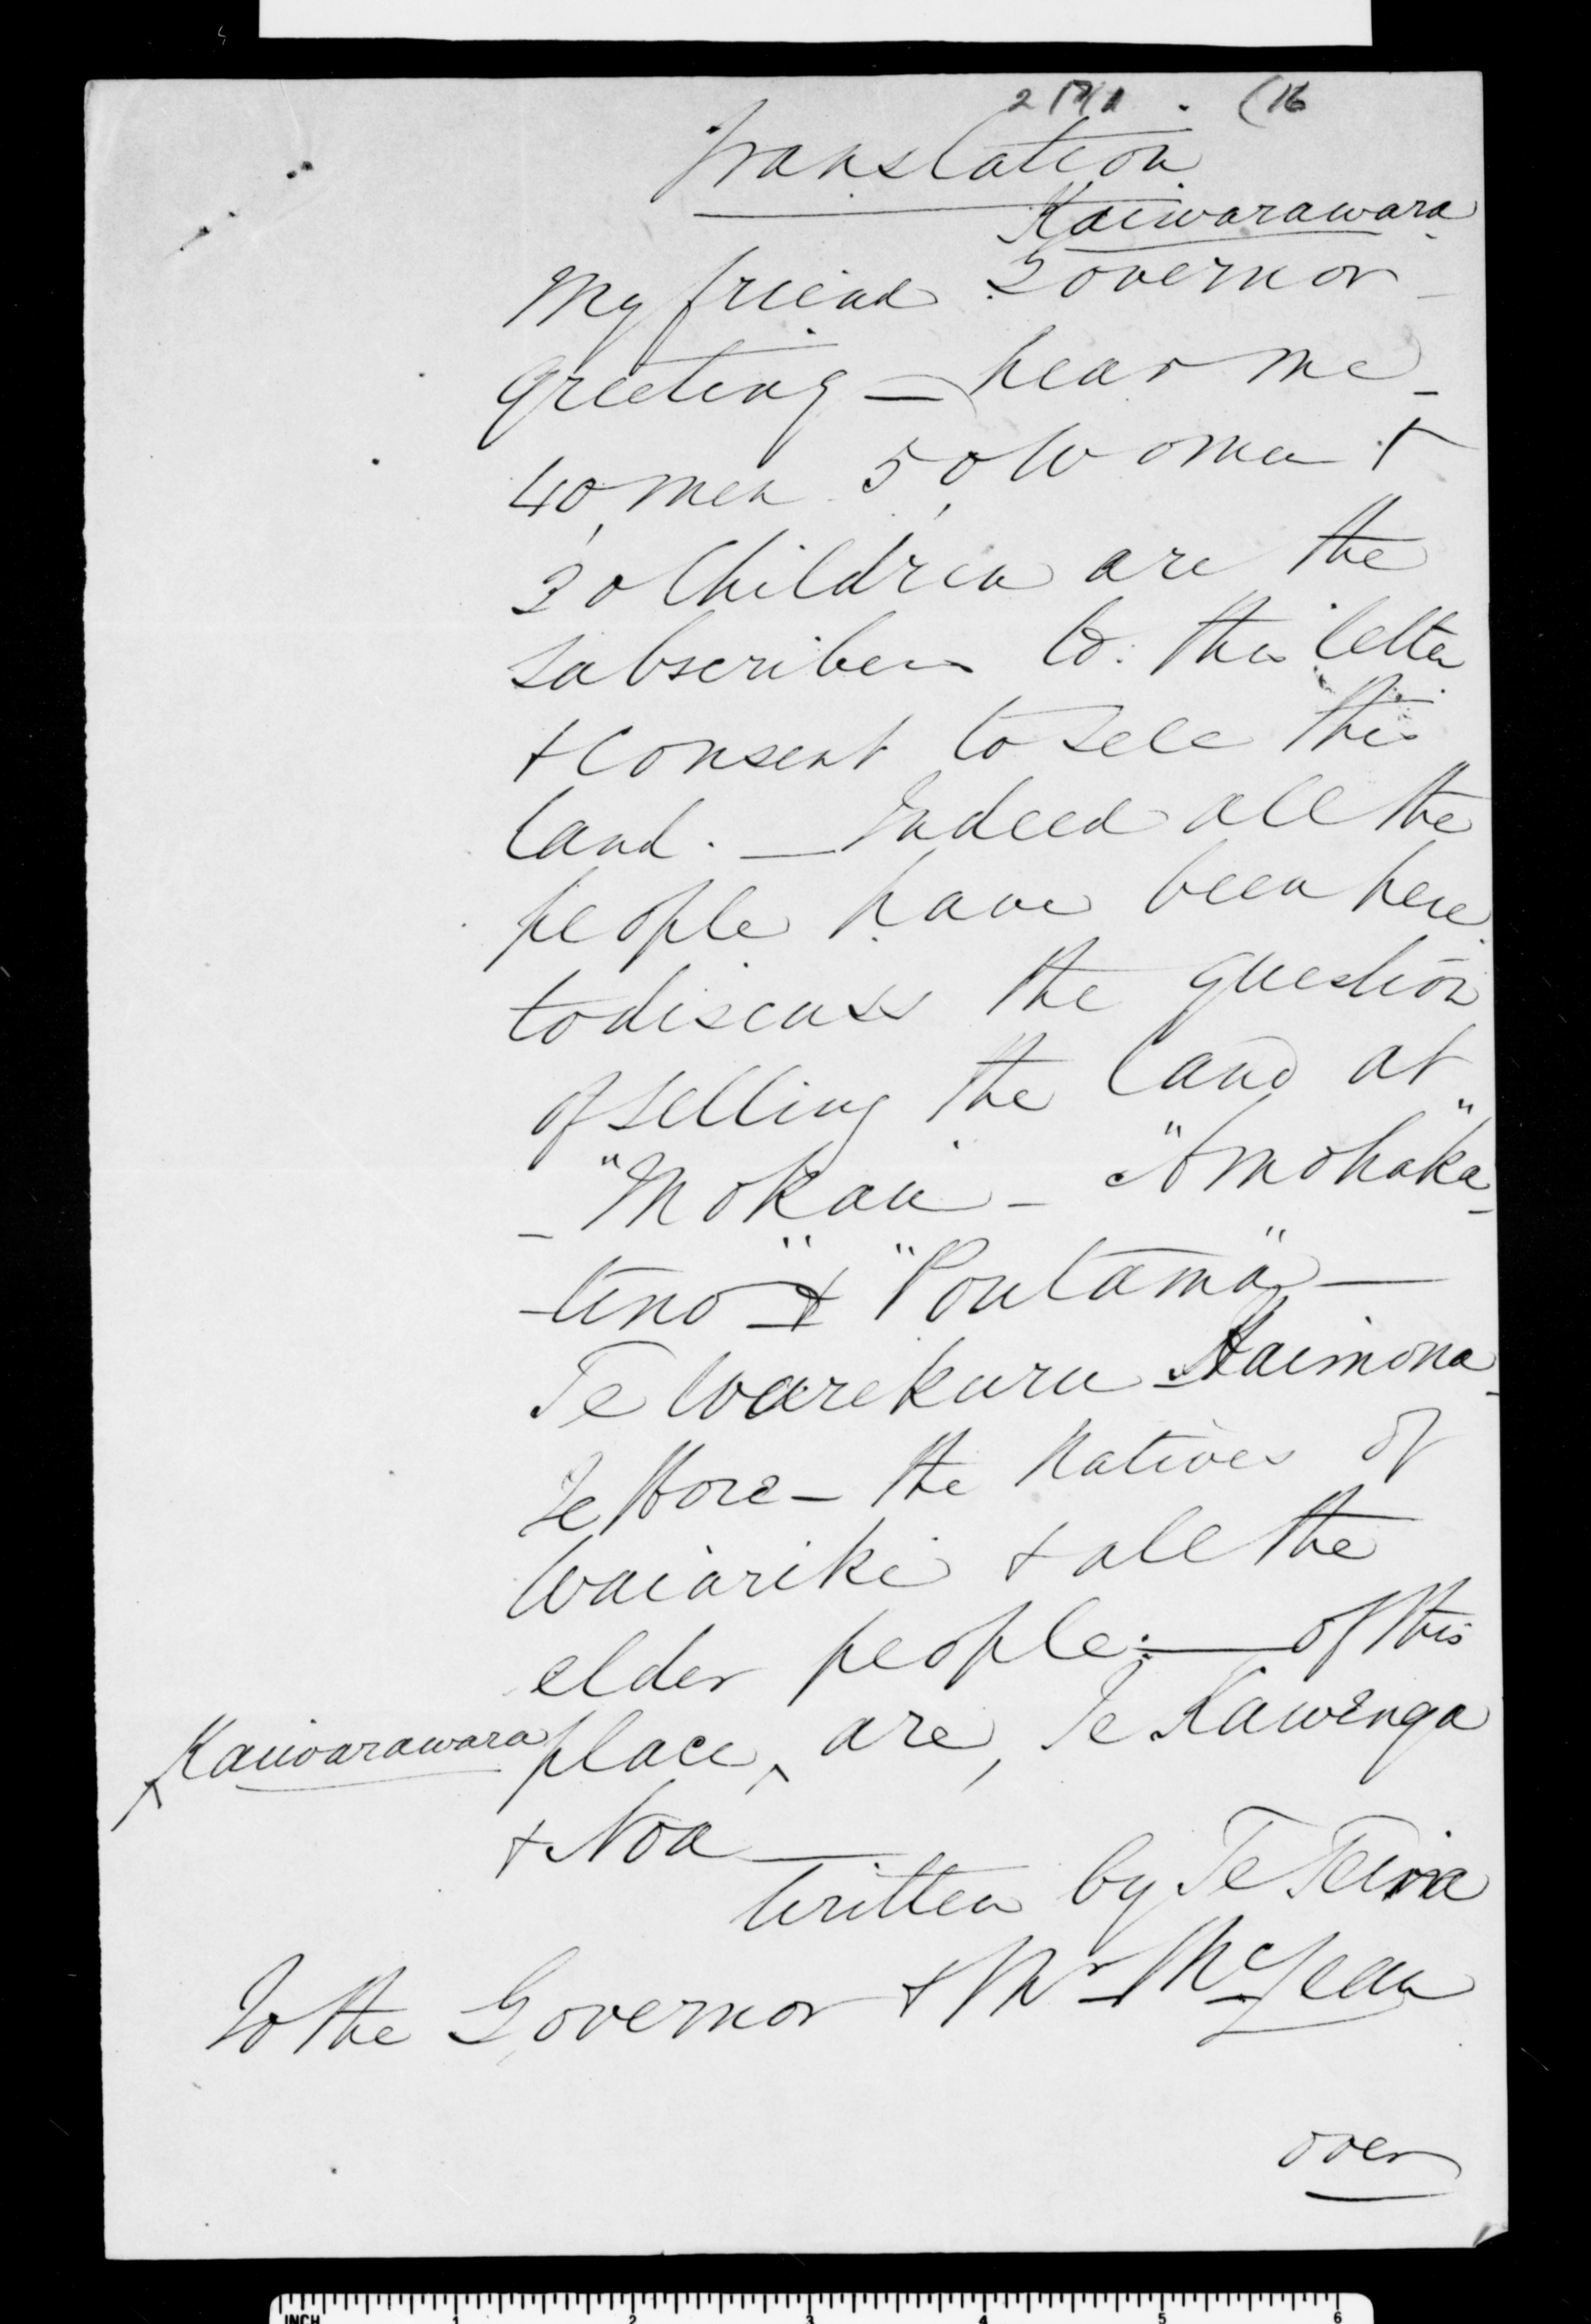 (16
Translation
Kaiwarawara
My friend Governor
greeting — hear me —
40 men, 50 Women &
30 Children are the
subscribers to this letter
& consent to sell this
land. — Indeed all the
people have been here
to discuss the question
of selling the land at
— "Mokau" — "Amohaka-
-tino" & "Poutama" —
Te Warekuru Haimona —
Te Hore — the Natives of
Waiariki & all the
elder people: — of this
Kaiwarawara place, are, Te Kawenga
& Noa —
Written by Te Teira
To the Governor & Mr McLean
over
INCH 1 2 3 4 5 6